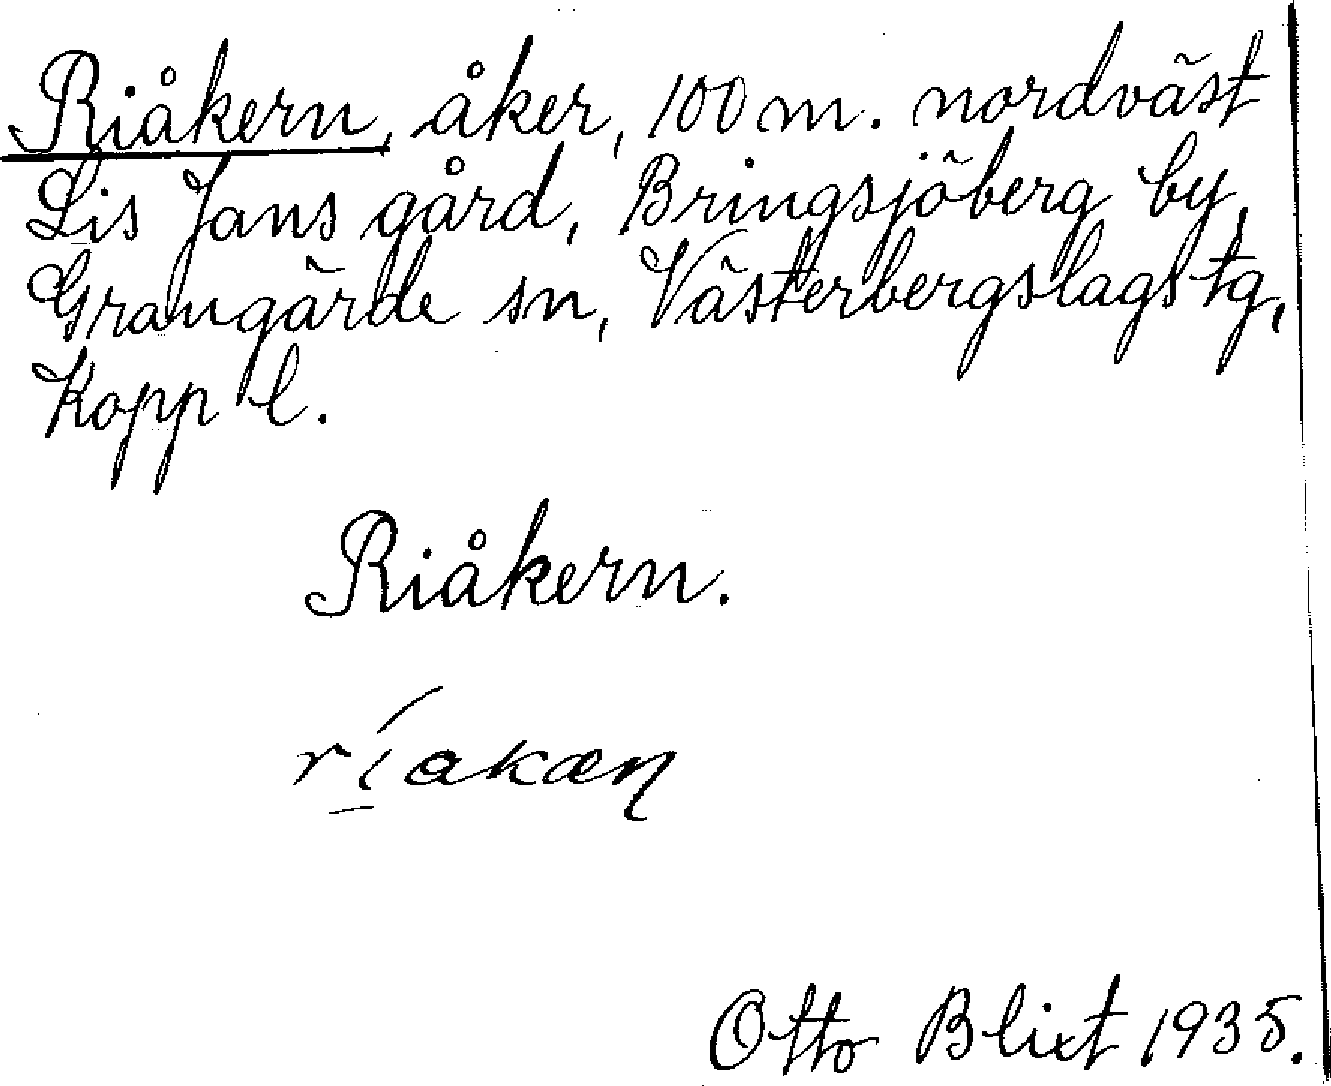 Riåkern, åker, 100 m. nordväst
Lis Jans gård, Bringsjöberg by,
Grangärde sn, Västerbergslags tg,
Kopp l.
Riåkern.
ríakæn
Otto Blixt 1935.